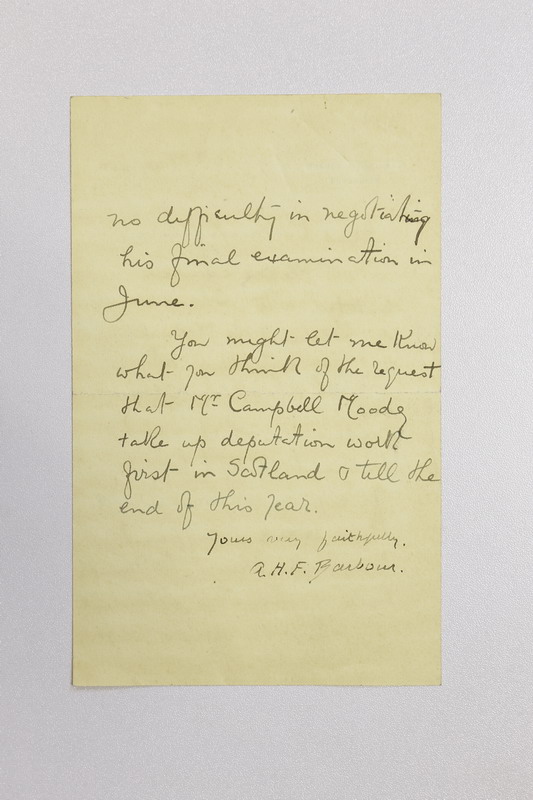 no difficulty in negotiating
his final examination in
June.
You might let me know
what you think of the request
that Mr Campbell Moody
take up deputation work
first in Scotland & till the
end of this year.
Yours very faithfully.
A.H.F. Barbour.